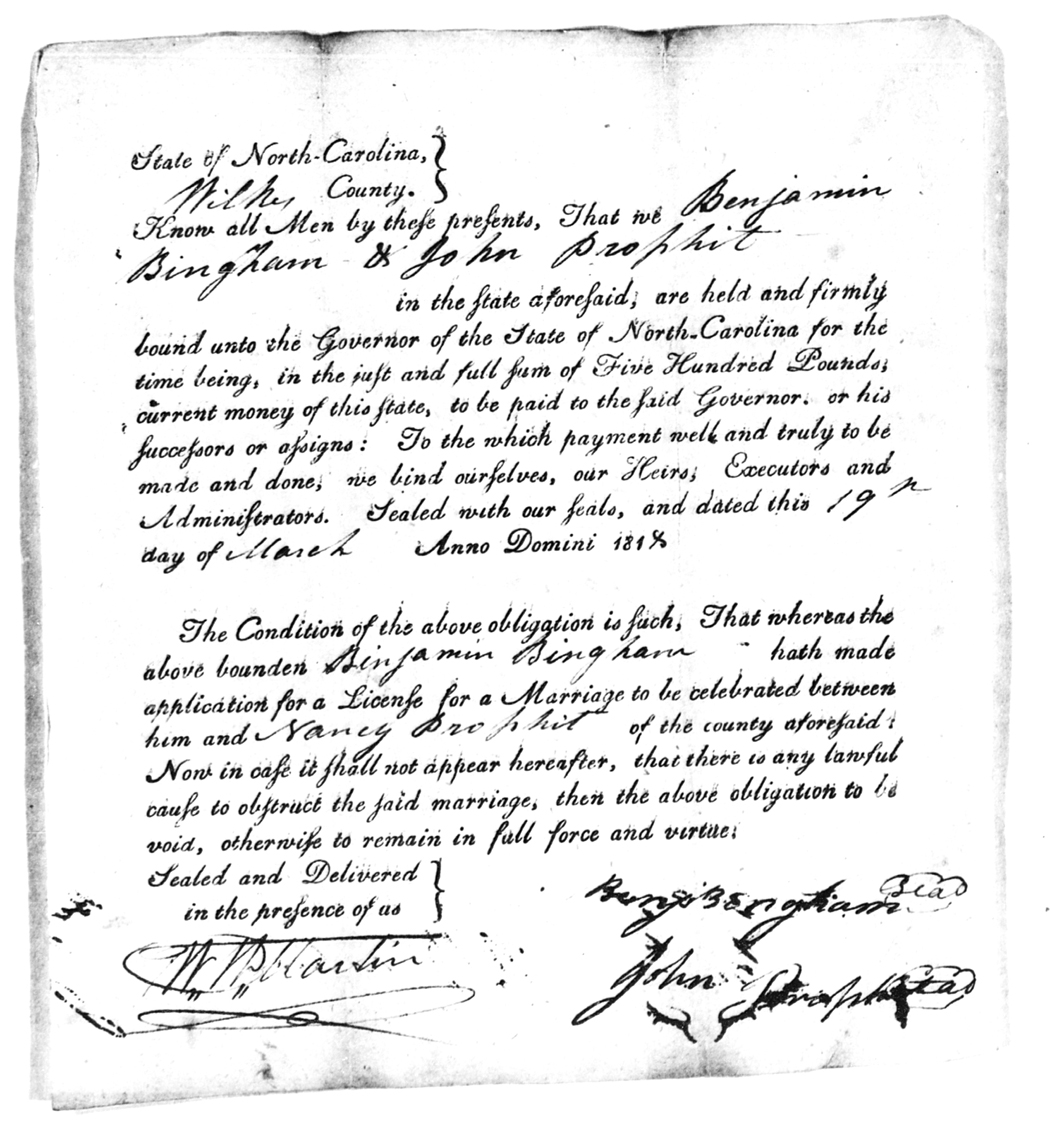 State of North-Carolina,
Wilkes County.
Know all Men by theſe preſents, That we Benjamin
Bingham & John Prophit
in the ſtate aforeſaid, are held and firmly
bound unto the Governor of the State of North-Carolina for the
time being, in the juſt and full ſum of Five Hundred Pounds,
current money of this ſtate, to be paid to the ſaid Governor. or his
ſucceſſors or aſſigns: To the which payment well and truly to be
made and done, we bind ourſelves, our Heirs, Executors and
Adminiſtrators. Sealed with our ſeals, and dated this 19th
day of March Anno Domini 1818
The Condition of the above obligation is ſuch, That whereas the
above bounden Binjamin Bingham hath made
application for a Licenſe for a Marriage to be celebrated between
him and Nancy Prophit of the county aforeſaid:
Now in caſe it ſhall not appear hereafter, that there is any lawful
cauſe to obſtruct the ſaid marriage, then the above obligation to be
void, otherwiſe to remain in full force and virtue:
Sealed and Delivered
in the preſence of us
Benj Bengham Seal
W. W. Martin
John Prophit Seal